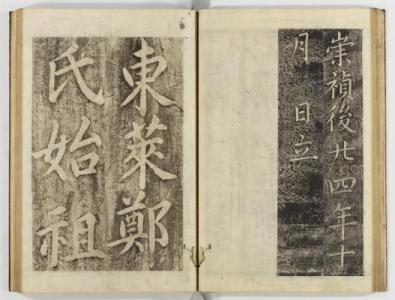 崇禎後廿四年十
月 日立
東萊鄭
氏始祖